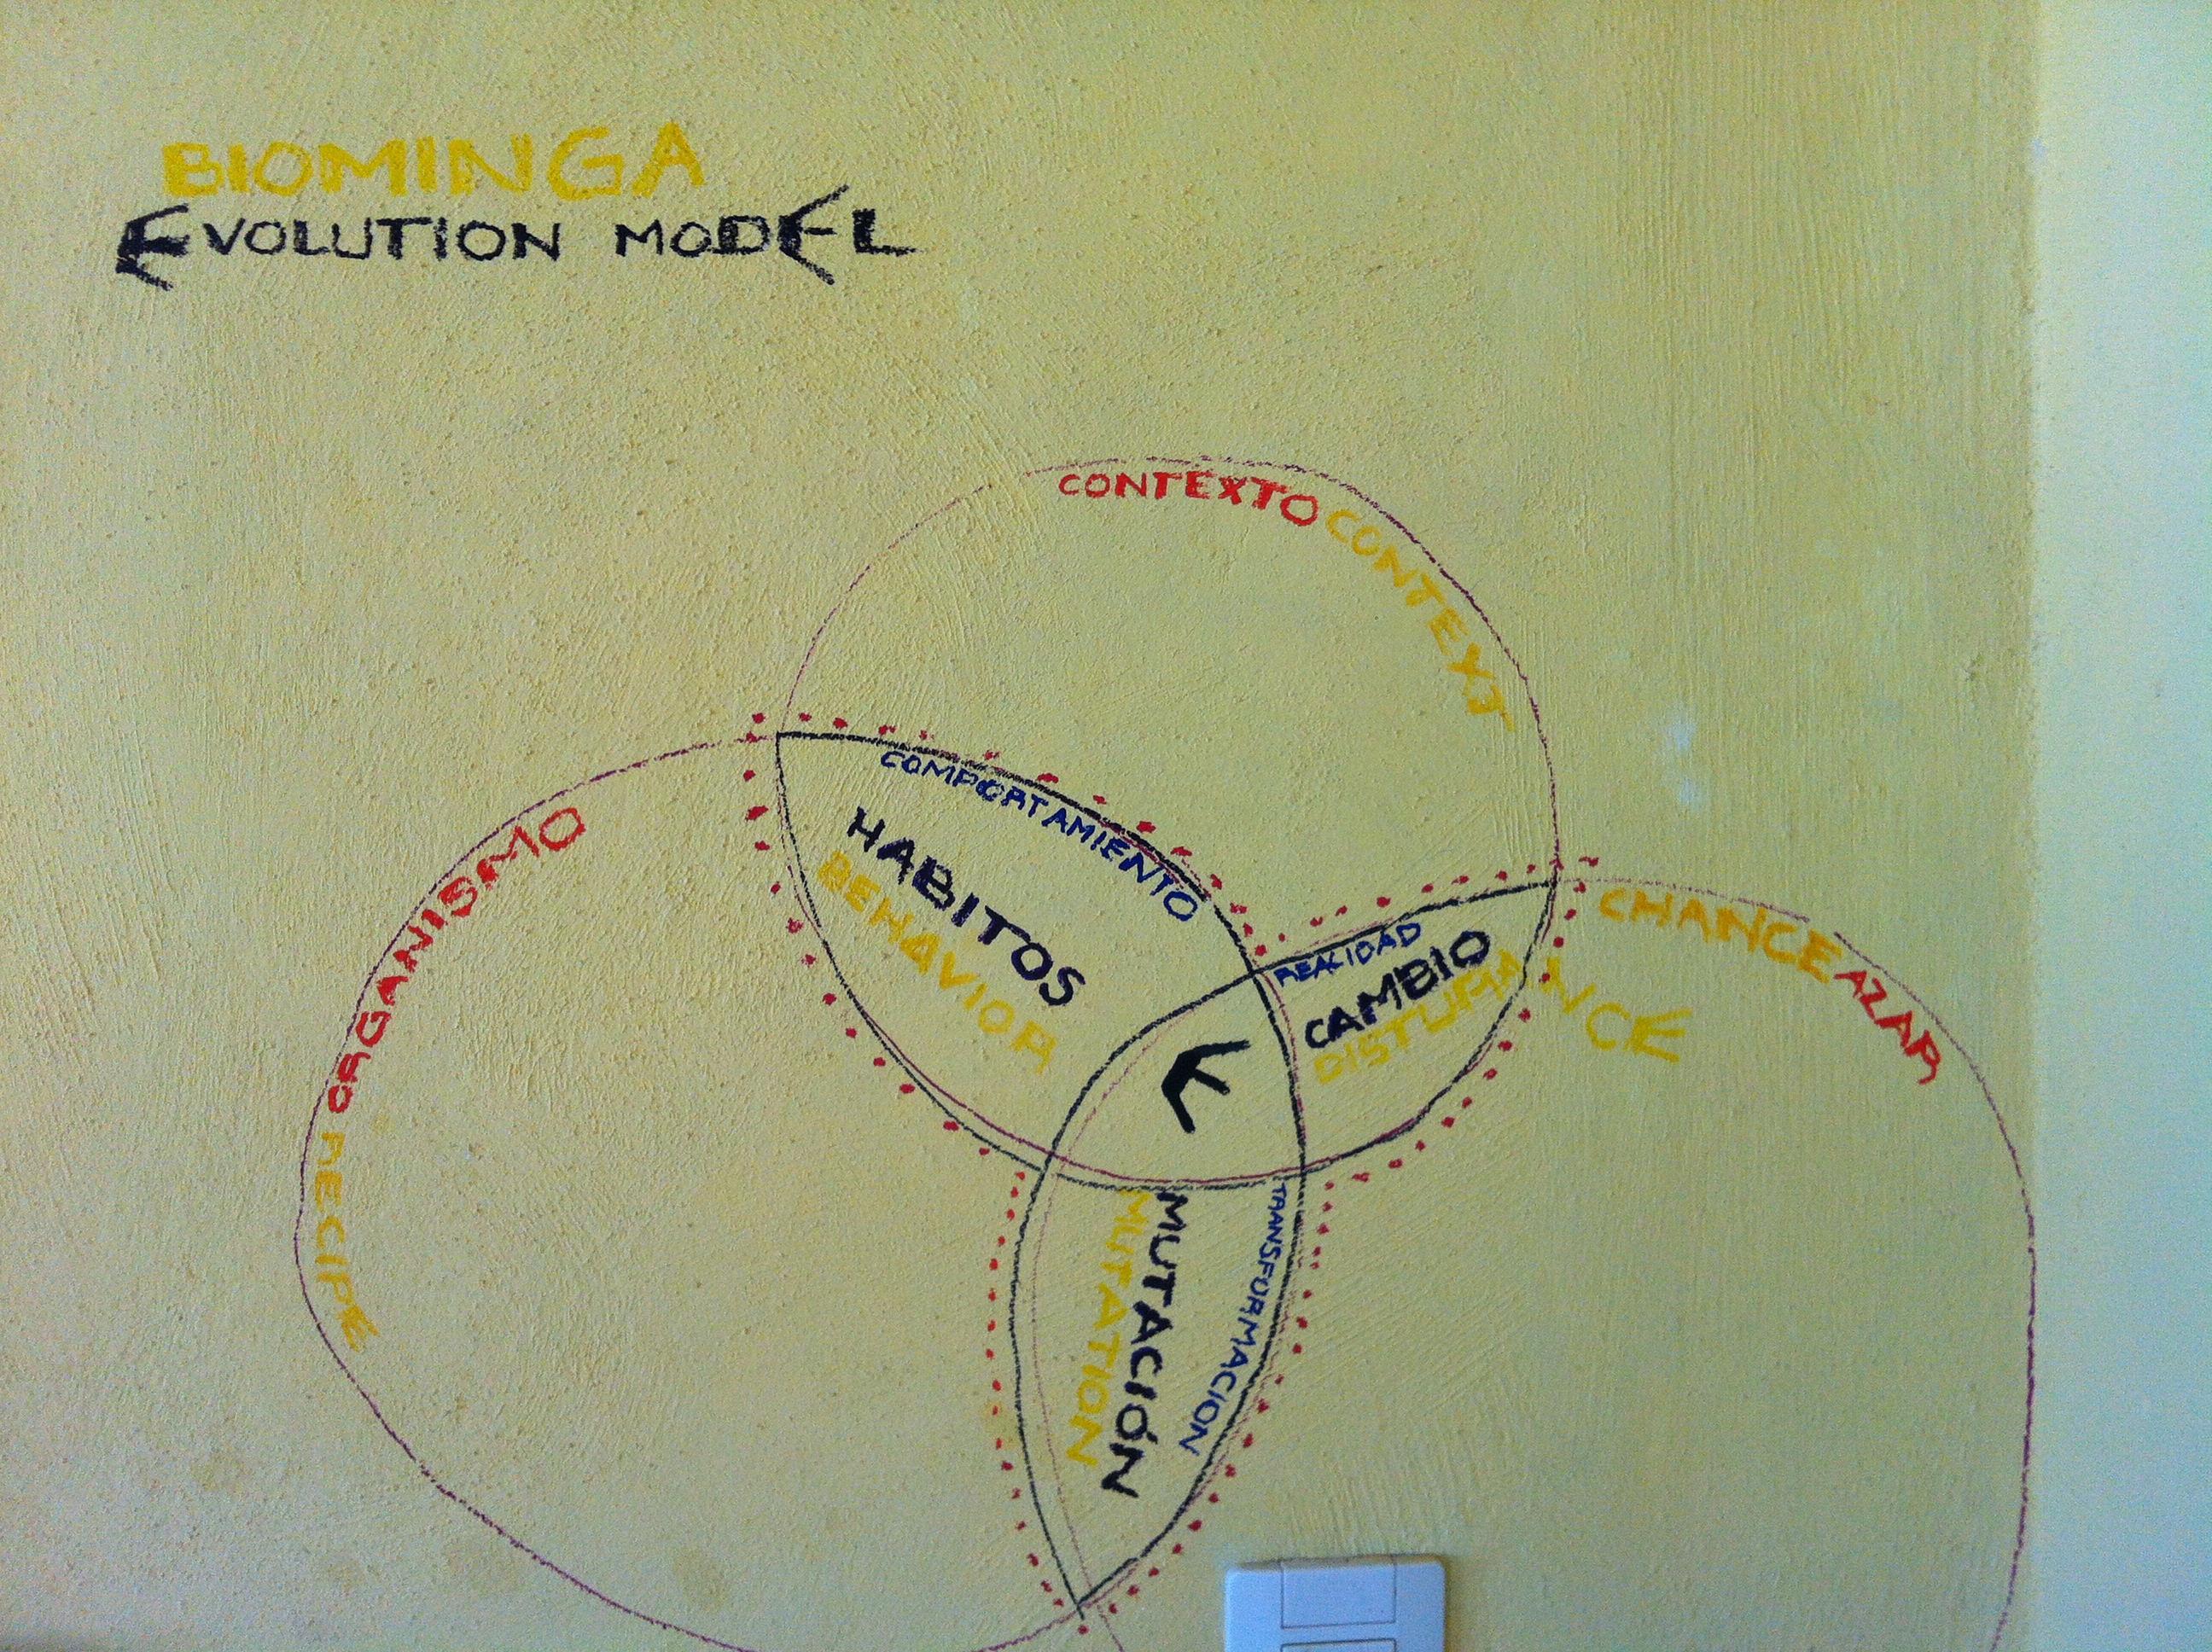 BIOMINGA
EVOLUTION MODEL
CONTEXTO CONTEXT
COMPORTAMIENTO
HABITOS
BEHAVIOR
ORGANISMO
RECIPE
REALIDAD
CAMBIO
DISTURBANCE
CHANCE AZAR
E
MUTACIÓN
MUTATION
TRANSFORMACION